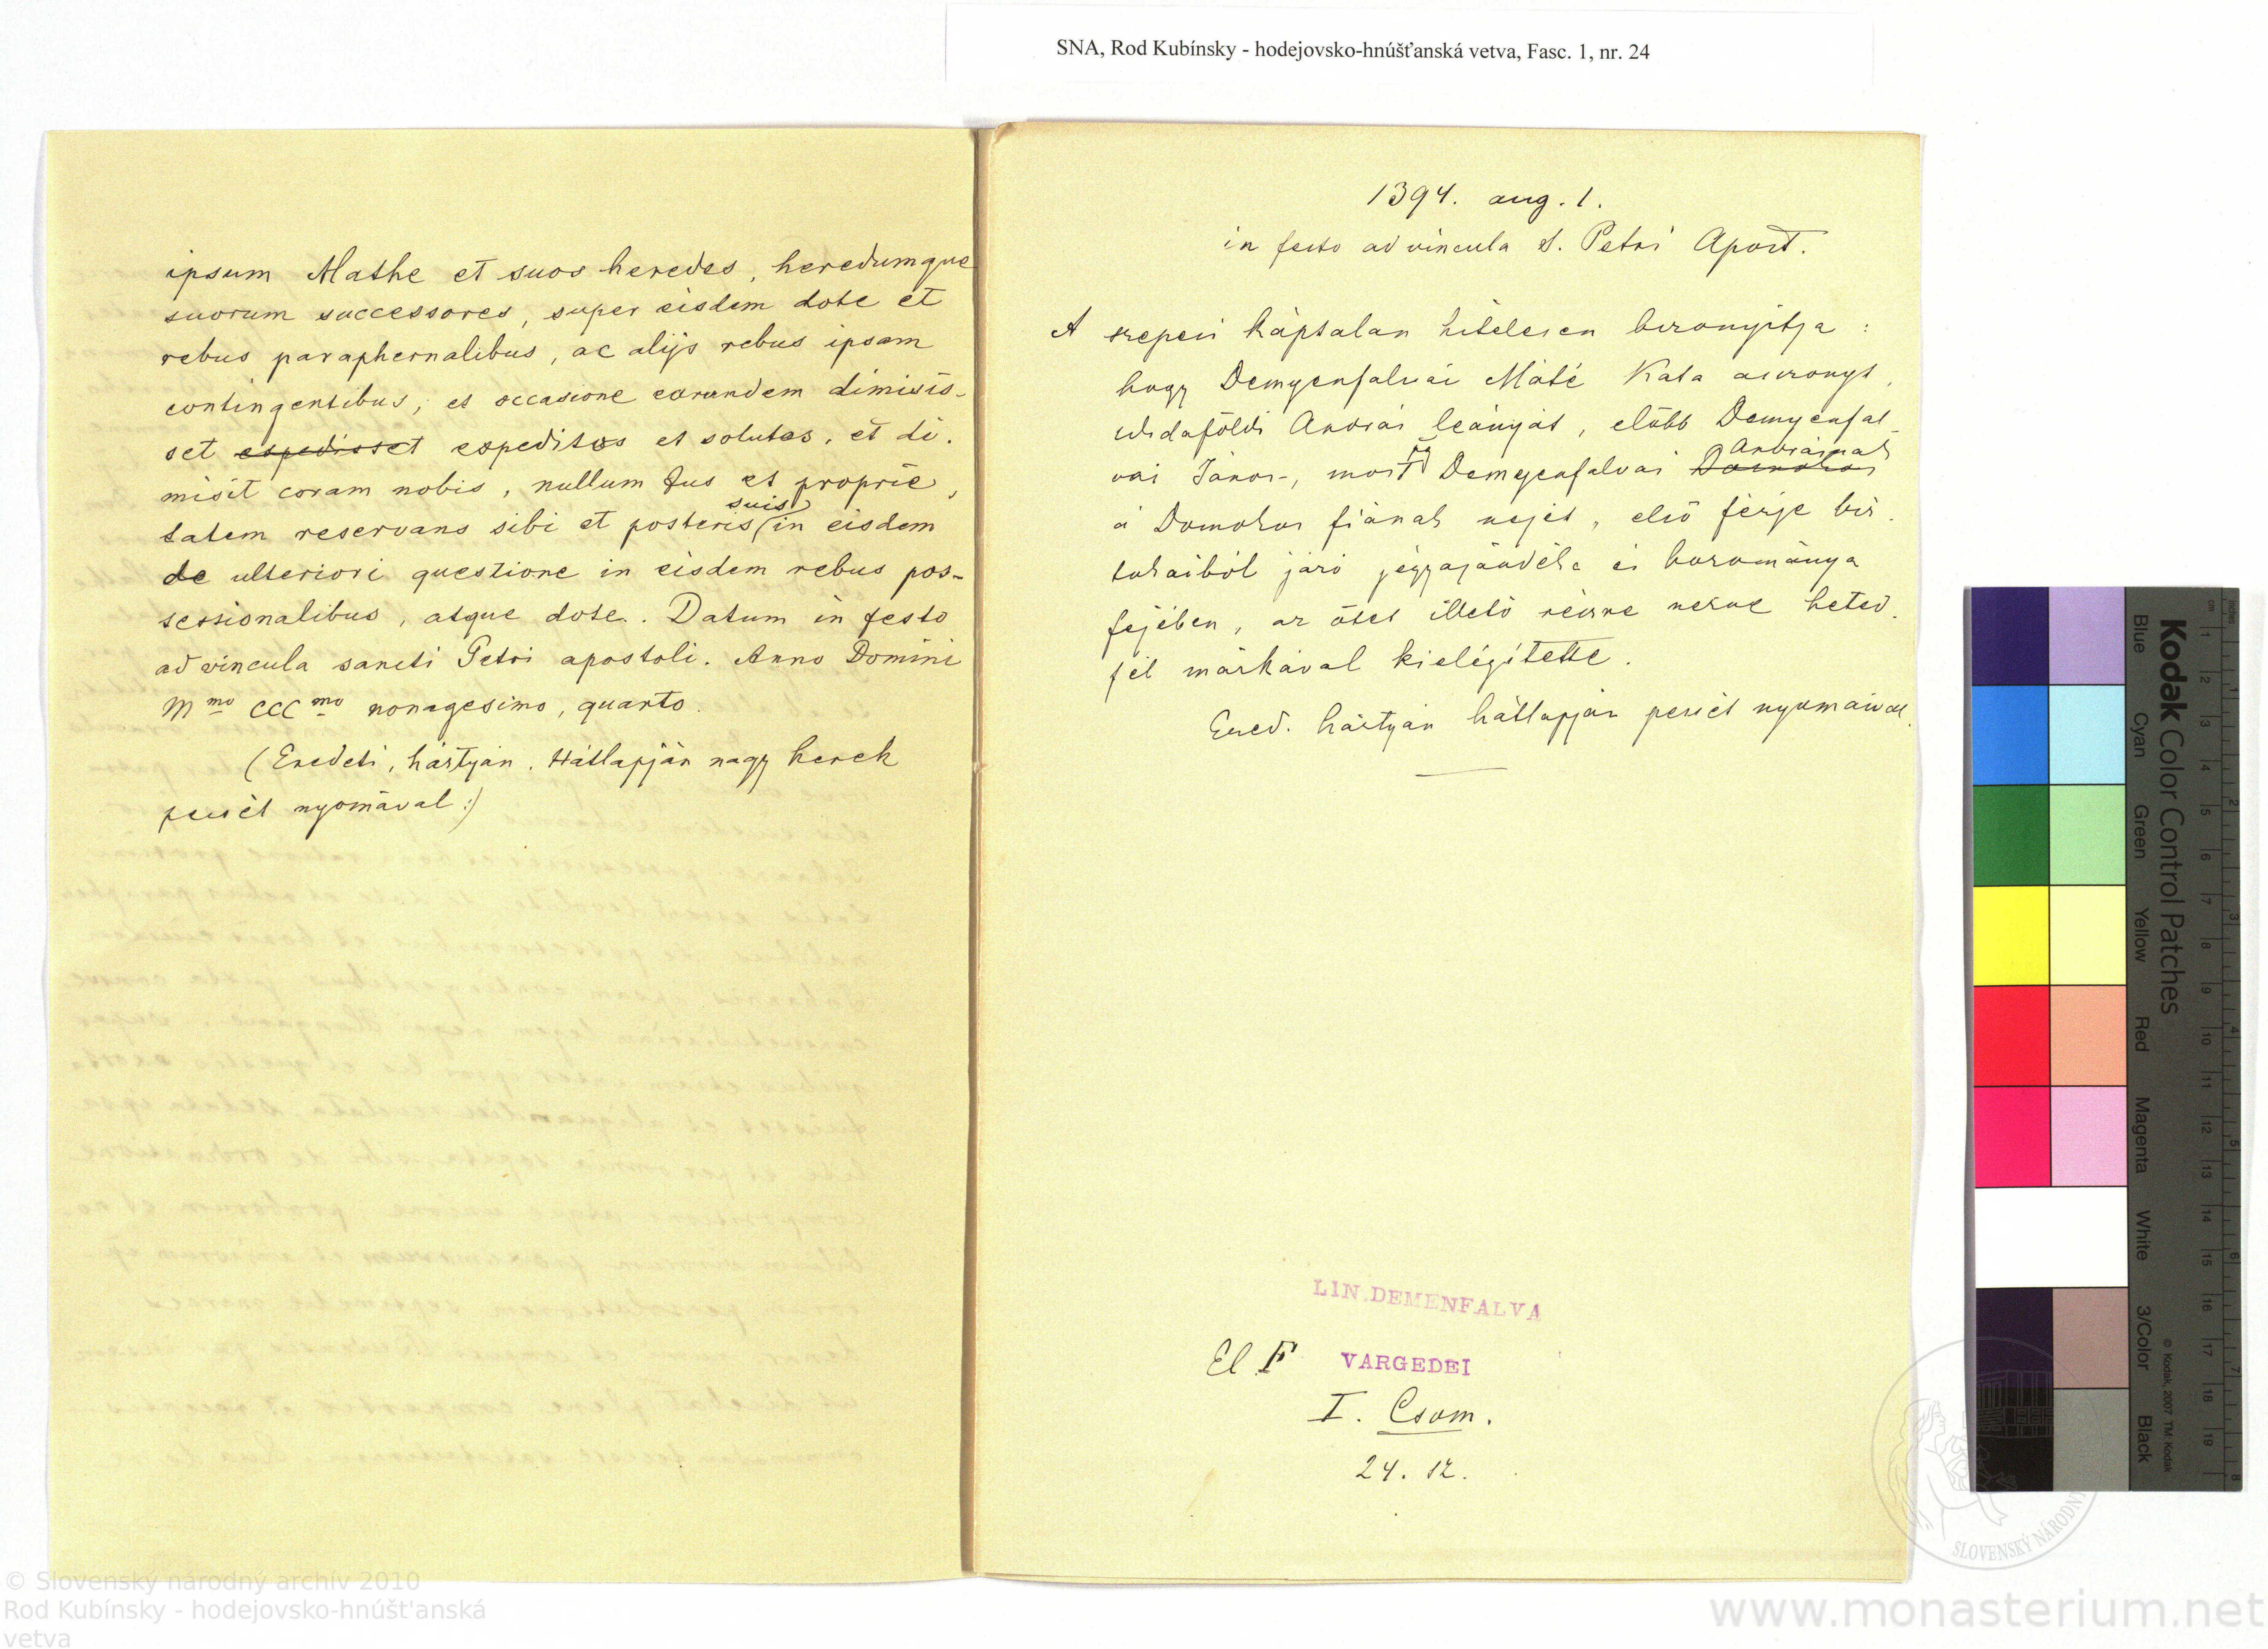 SNA, Rod Kubínsky - hodejovsko-hnúšťanská vetva, Fasc. 1, nr. 24
ipsum Mathe et suos heredes, heredumque
suorum successores, super eisdem dote et
rebus paraphernalibus, ac alijs rebus ipsam
contingentibus, et occasione eorundem dimisis-
set expedisset expeditos et solutos, et di-
misit coram nobis, nullum Jus et proprie,
suis
tatem reservans sibi et posteris in eisdem
de ulteriori questione in eisdem rebus pos-
sessionalibus, atque dote. Datum in festo
ad vincula sancti Petri apostoli. Anno Domini
Mmo CCCmo nonagesimo, quarto.
(Eredeti, hártyán. Hátlapján nagy kerek
pecsét nyomával:)
1394. aug. 1.
in festo ad vincula S. Petri Apost.
A szepesi káptalan hitelesen bizonyítja:
hogy Demyenfalvai Máté Kata asszonyt,
András leányát, előbb Demyenfal-
Andrásnak
vai János-, most Demyenfalvai Domokos
a Domokos fiának nejét, első férje bir-
tokaiból járó jegyajándéka és hozománya
fejében, az őtet illető részre nézve heted-
fél márkával kielégítette.
Ered. hártyán hátlapján pecsét nyomaival.
LIN. DEMENFALVA
El F VARGEDEI
I. Csom.
24. sz.
Kodak Color Control Patches
Blue Cyan Green Yellow Red Magenta White 3/Color Black
© Kodak, 2007 TM: Kodak
SLOVENSKÝ NÁRODNÝ
© Slovenský národný archív 2010
Rod Kubínsky - hodejovsko-hnúšt'anská
vetva
www.monasterium.net